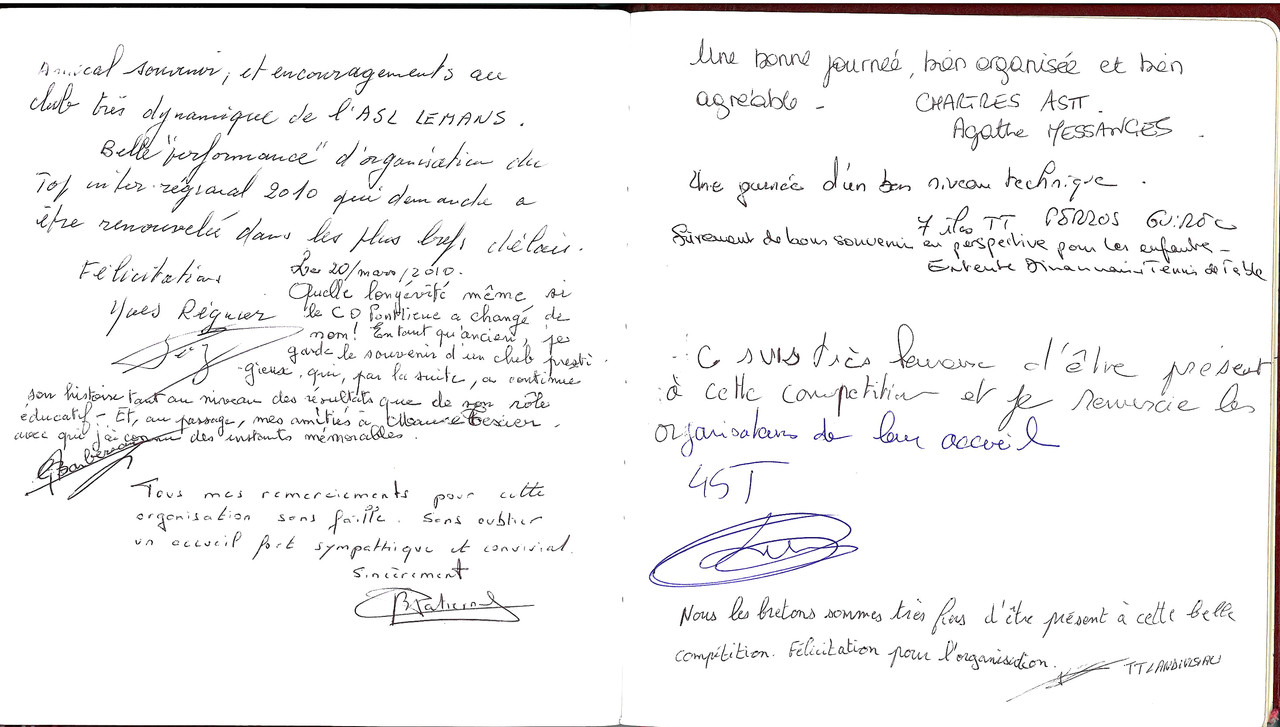 Amical souvenir, et encouragements au
club très dynamique de l'ASL LEMANS.
Belle "performance" d'organisation du
Top inter-régional 2010 qui demande a
être renouvelée dans les plus brefs délais.
Félicitations
Yves Régnier
Le 20/mars/2010.
Quelle longévité même si
le CO Pontlieue a changé de
nom! En tant qu'ancien, je
garde le souvenir d'un club presti-
gieux, qui, par la suite, a continué
son histoire tant au niveau des résultats que de son rôle
éducatif - Et, au passage, mes amitiés à
avec qui j'ai connu des instants mémorables.
Tous mes remerciements pour cette
organisation sans faille. Sans oublier
un accueil fort sympathique et convivial.
Sincèrement
Une bonne journée, bien organisée et bien
agréable -
CHARTRES ASTT.
Agathe MESSANGES.
Une journée d'un bon niveau technique.
7 îles TT PERROS GUIREC
Sûrement de bons souvenir en perspective pour les enfants -
Entente Dinannaise Tennis de Table
suis très heureux d'être présent
à cette competition et je remercie les
organisateurs de leur accueil
4ST
Nous les bretons sommes très fiers d'être présent à cette belle
compétition. Félicitation pour l'organisation.
TT LANDIVISIAU